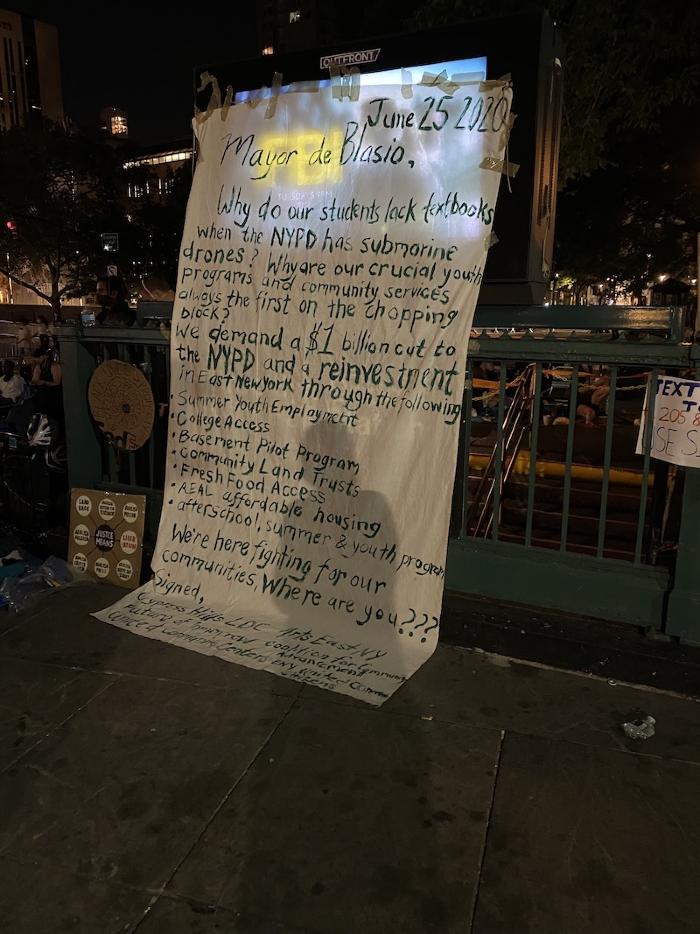 OUTFRONT
June 25 2020
Mayor de Blasio,
Why do our students lack textbooks
when the NYPD has submarine
drones? Why are our crucial youth
programs and community services
always the first on the chopping
block?
We demand a $1 billion cut to
the NYPD and a reinvestment
in East New York through the following
• Summer Youth Employment
• College Access
• Basement Pilot Program
• Community Land Trusts
• Fresh Food Access
• REAL affordable housing
• afterschool, summer & youth program
We're here fighting for our
communities, Where are you???
Signed,
Cypress Hills LDC Arts East NY
Future of Tomorrow coalition for Community
Advancement
United Community Centers ENY United Concerned
Citizens
JUSTICE
MEANS
TEXT
TO
205